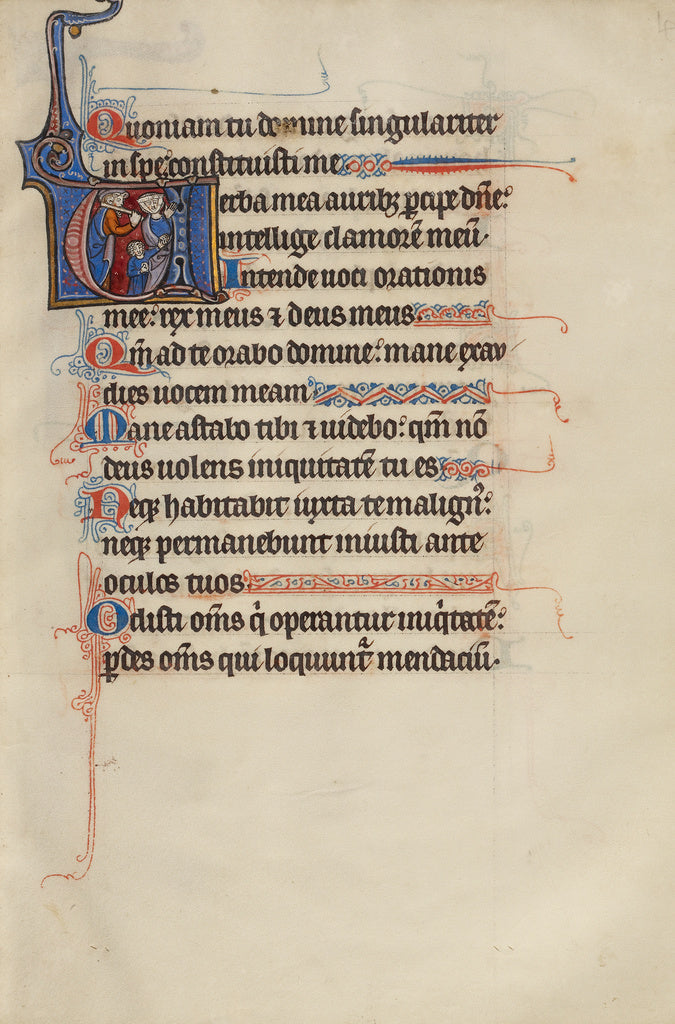 Quoniam tu domine singulariter
in spe: constituisti me
Verba mea auribꝫ ꝑcipe dn̄e:
intellige clamorē meū.
Intende uoci orationis
mee: rex meus ⁊ deus meus
Qm̄ ad te orabo domine: mane exau
dies uocem meam
Mane astabo tibi ⁊ uidebo: qm̄ nō
deus uolens iniquitatē tu es
Neqꝫ habitabit iuxta te malignꝰ:
neqꝫ permanebunt iniusti ante
oculos tuos
Odisti om̄s qͥ operantur iniqͥtatē:
ꝑdes om̄s qui loquuntᷣ mendaciū.